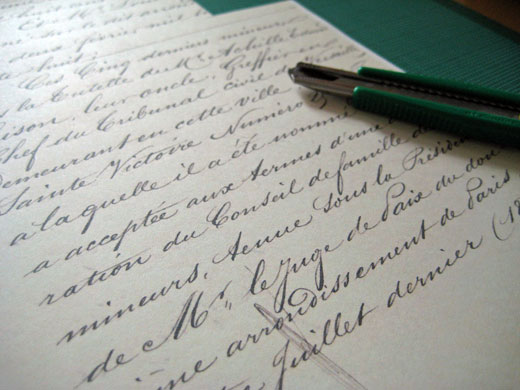 dans
février mil
huit
Ces Cinq derniers mineurs
la Tutelle de Mr. Achille
leur oncle, Greffier en
Chef du Tribunal civil
demeurant en cette ville
Sainte Victoire Numéro
à laquelle il a été nommé
a acceptée aux termes d'une
ration du Conseil de famille des
mineurs, tenue sous la Présiden
de Mr. le Juge de Paix du dou
ième arrondissement de Paris
Juillet dernier (18